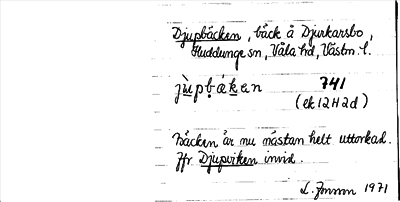 Djupbäcken, bäck å Djurkarsbo,
Huddunge sn, Våla hd, Västm. l.
jùpḅäḱen 741
(ek 12H2d)
Bäcken är nu nästan helt uttorkad.
Jfr Djupviken invid.
1971